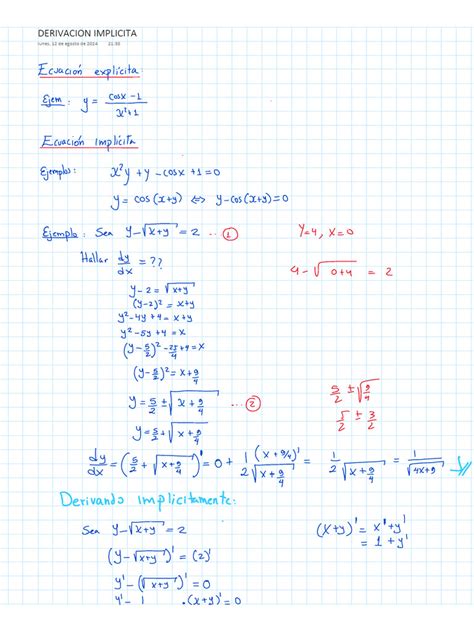 DERIVACION IMPLICITA
lunes, 12 de agosto de 2024 21:30
Ecuación explícita:
Ejem: y = (cosx - 1)/(x²+1)
Ecuación implícita
Ejemplos: x²y + y - cosx + 1 = 0
y = cos(x+y) ⟺ y - cos(x+y) = 0
Ejemplo: Sea y - √(x+y) = 2 ... ①
Y=4, x=0
Hallar dy/dx = ??
4 - √(0+4) = 2
y - 2 = √(x+y)
(y-2)² = x+y
y² - 4y + 4 = x + y
y² - 5y + 4 = x
(y - 5/2)² - 25/4 + 4 = x
(y - 5/2)² = x + 9/4
5/2 ± √(9/4)
y = 5/2 ± √(x + 9/4) ... ②
5/2 ± 3/2
y = 5/2 + √(x + 9/4)
dy/dx = (5/2 + √(x + 9/4))' = 0 + 1/2 (x + 9/4)'/√(x + 9/4) = 1/(2√(x + 9/4)) = 1/√(4x+9)
Derivando implicitamente:
Sea y - √(x+y) = 2
(x+y)' = x' + y'
= 1 + y'
(y - √(x+y))' = (2)'
y' - (√(x+y))' = 0
y' - 1 .(x+y)' = 0